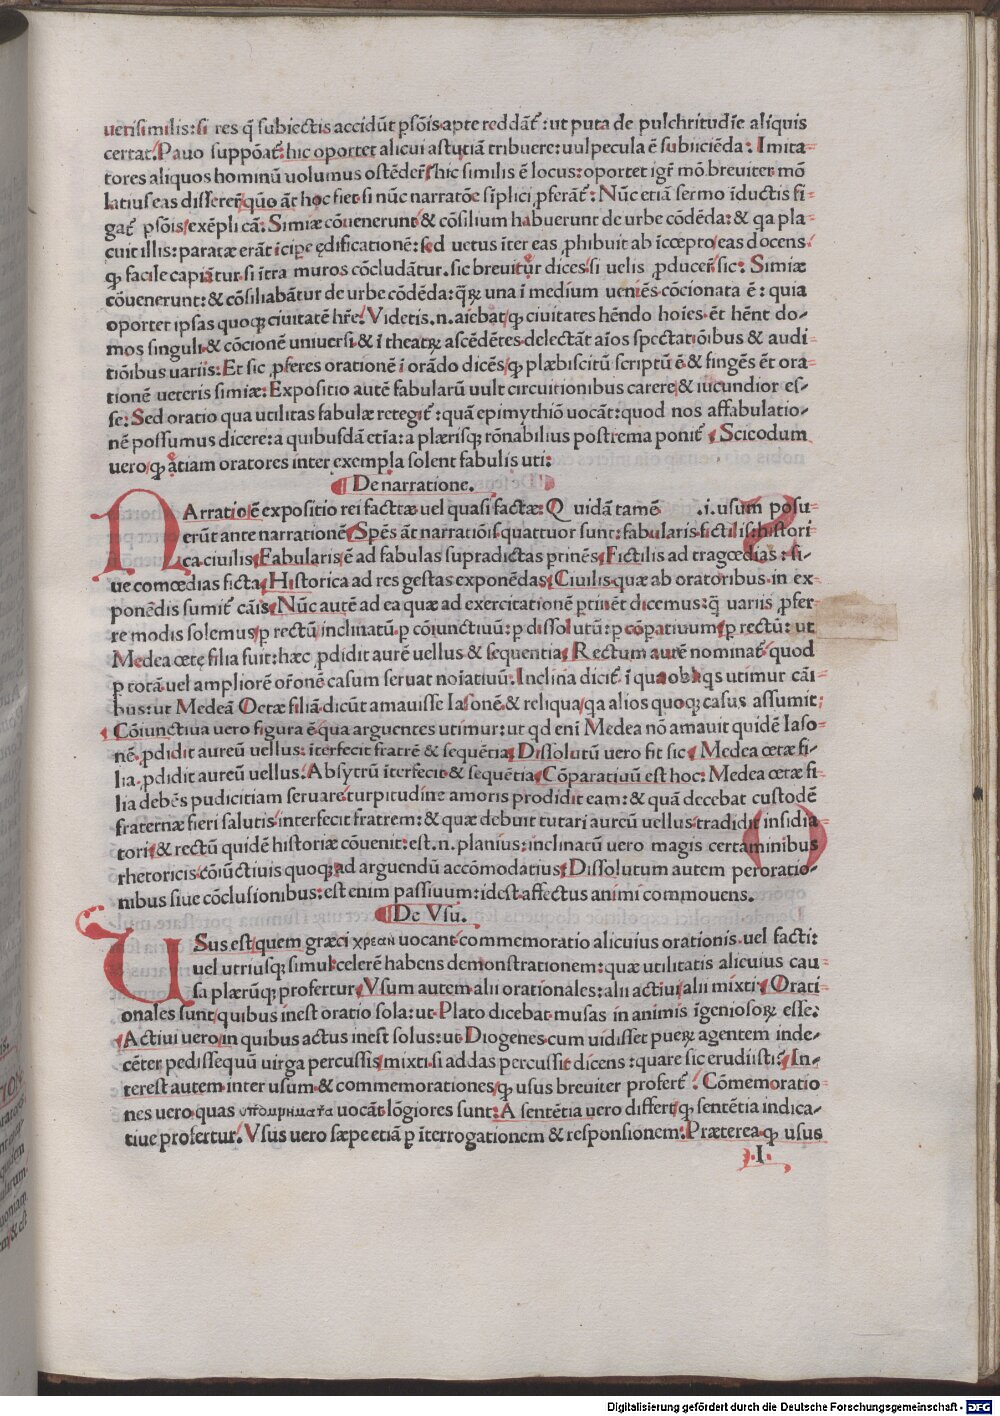 uerisimilis: si res q̄ subiectis accidūt p̄sōis apte reddāt᷑: ut puta de pulchritudīe aliquis
certat. Pauo suppōat᷑: hic oportet alicui astutiā tribuere: uulpecula ē subiiciēda. Imita-
tores aliquos hominū uolumus ostēdere᷑ hic similis ē locus: oportet igr̄ mō breuiter mō
latius eas differer̄ quo āt hoc fiet si nūc narratōe sīplici ꝓferāt᷑: Nūc etiā sermo īductis fi-
gat᷑ p̄sōis exēpli cā: Simiæ cōuenerunt & cōsilium habuerunt de urbe cōdēda: & qa pla-
cuit illis: paratæ erāt īcipe ędificationē: sed uetus īter eas ꝓhibuit ab īccepto eas docens
qꝫ facile capiātur si ītra muros cōcludātur. sic breuit̄ur dices si uelis ꝓducer̄ sic: Simiæ
cōuenerunt: & cōsiliabātur de urbe cōdēda: q̄rꝫ una ī medium ueniēs cōcionata ē: quia
oportet ipsas quoqꝫ ciuitatē hr̄e. Videtis .n. aiebat qꝫ ciuitates hēndo hoīes ēt hēnt do-
mos singuli & cōcionē uniuersi & ī theatrꝫ ascēdētes delectāt aīos spectatiōibus & audi-
tiōibus uariis: Et sic ꝓferes orationē ī orādo dicēs qꝫ plæbiscitū scriptū ē & fingēs ēt ora-
tionē ueteris simiæ: Expositio autē fabularū uult circuitionibus carere & iucundior es-
se: Sed oratio qua utilitas fabulæ retegit᷑: quā epimythiō uocāt: quod nos affabulatio-
nē possumus dicere: a quibusdā etīa: a plærisqꝫ rōnabilius postrema ponit᷑ Sciēdum
uero qꝫ ātiam oratores inter exempla solent fabulis uti:
De narratione.
NArratio ē expositio rei facttæ uel quasi factæ: Quidā tamē .i. usum posu-
erūt ante narrationē Spēs āt narratiōis quattuor sunt: fabularis fictilis: histori
ca ciuilis Fabularis ē ad fabulas supradictas ptinēs Fictilis ad tragœdias: si-
ue comœdias ficta Historica ad res gestas exponēdas Ciuilis quæ ab oratoribus in ex-
ponēdis sumit᷑ cāis Nūc autē ad ea quæ ad exercitationē ptinēt dicemus: q̄ uariis ꝓfer-
re modis solemus p rectū inclinatū p cōiunctiuū: p dissolutū: p cōpatiuum p rectū: ut
Medea œtę filia fuit: hæc ꝓdidit aurē uellus & sequentia Rectum autē nominat᷑ quod
p totā uel ampliorē or̄onē casum seruat noīatiuū. Inclina dicit᷑ ī qua obliqs utimur cāi
bus: ut Medeā Oetæ filiā dicūt amauisse Iasonē & reliqua qa alios quoqꝫ casus assumit;
Cōiunctiua uero figura ē qua arguentes utimur: ut qd enī Medea nō amauit quidē Iaso-
nē ꝓdidit aureū uellus: īterfecit fratrē & sequētia Dissolutū uero fit sic Medea œtæ fi-
lia ꝓdidit aureū uellus. Absytrū īterfecit & sequētia Cōparatiuū est hoc: Medea œtæ fi
lia debēs pudicitiam seruare turpitudine amoris prodidit eam: & quā decebat custodē
fraternæ fieri salutis interfecit fratrem: & quæ debuit tutari aureū uellus tradidit insidia
tori & rectū quidē historiæ cōuenit: est .n. planius: inclinatū uero magis certaminibus
rhetoricis cōiūctiuis quoqꝫ ad arguendū accōmodatius Dissolutum autem peroratio-
nibus siue cōclusionibus: est enim passiuum: idest affectus animi commouens.
De Vsu.
USus est quem græci χρεαν uocant commemoratio alicuius orationis uel facti:
uel utriusqꝫ simul celerē habens demonstrationem: quæ utilitatis alicuius cau-
sa plærūqꝫ profertur Vsum autem alii orationales: alii actiui alii mixti Orati-
onales sunt quibus inest oratio sola: ut Plato dicebat musas in animis īgeniosorꝫ esse:
Actiui uero in quibus actus inest solus: ut Diogenes cum uidisset puerꝫ agentem inde-
cēter pedissequū uirga percussis mixti si addas percussit dicens: quare sic erudiisti? In-
terest autem inter usum & commemorationes qꝫ usus breuiter profert᷑: Cōmemoratio-
nes uero quas υπομνηματα uocāt lōgiores sunt: A sentētia uero differt qꝫ sentētia indica-
tiue profertur. Vsus uero sæpe etiā p īterrogationem & responsionem: Præterea qꝫ usus
.I.
Digitalisierung gefördert durch die Deutsche Forschungsgemeinschaft - DFG